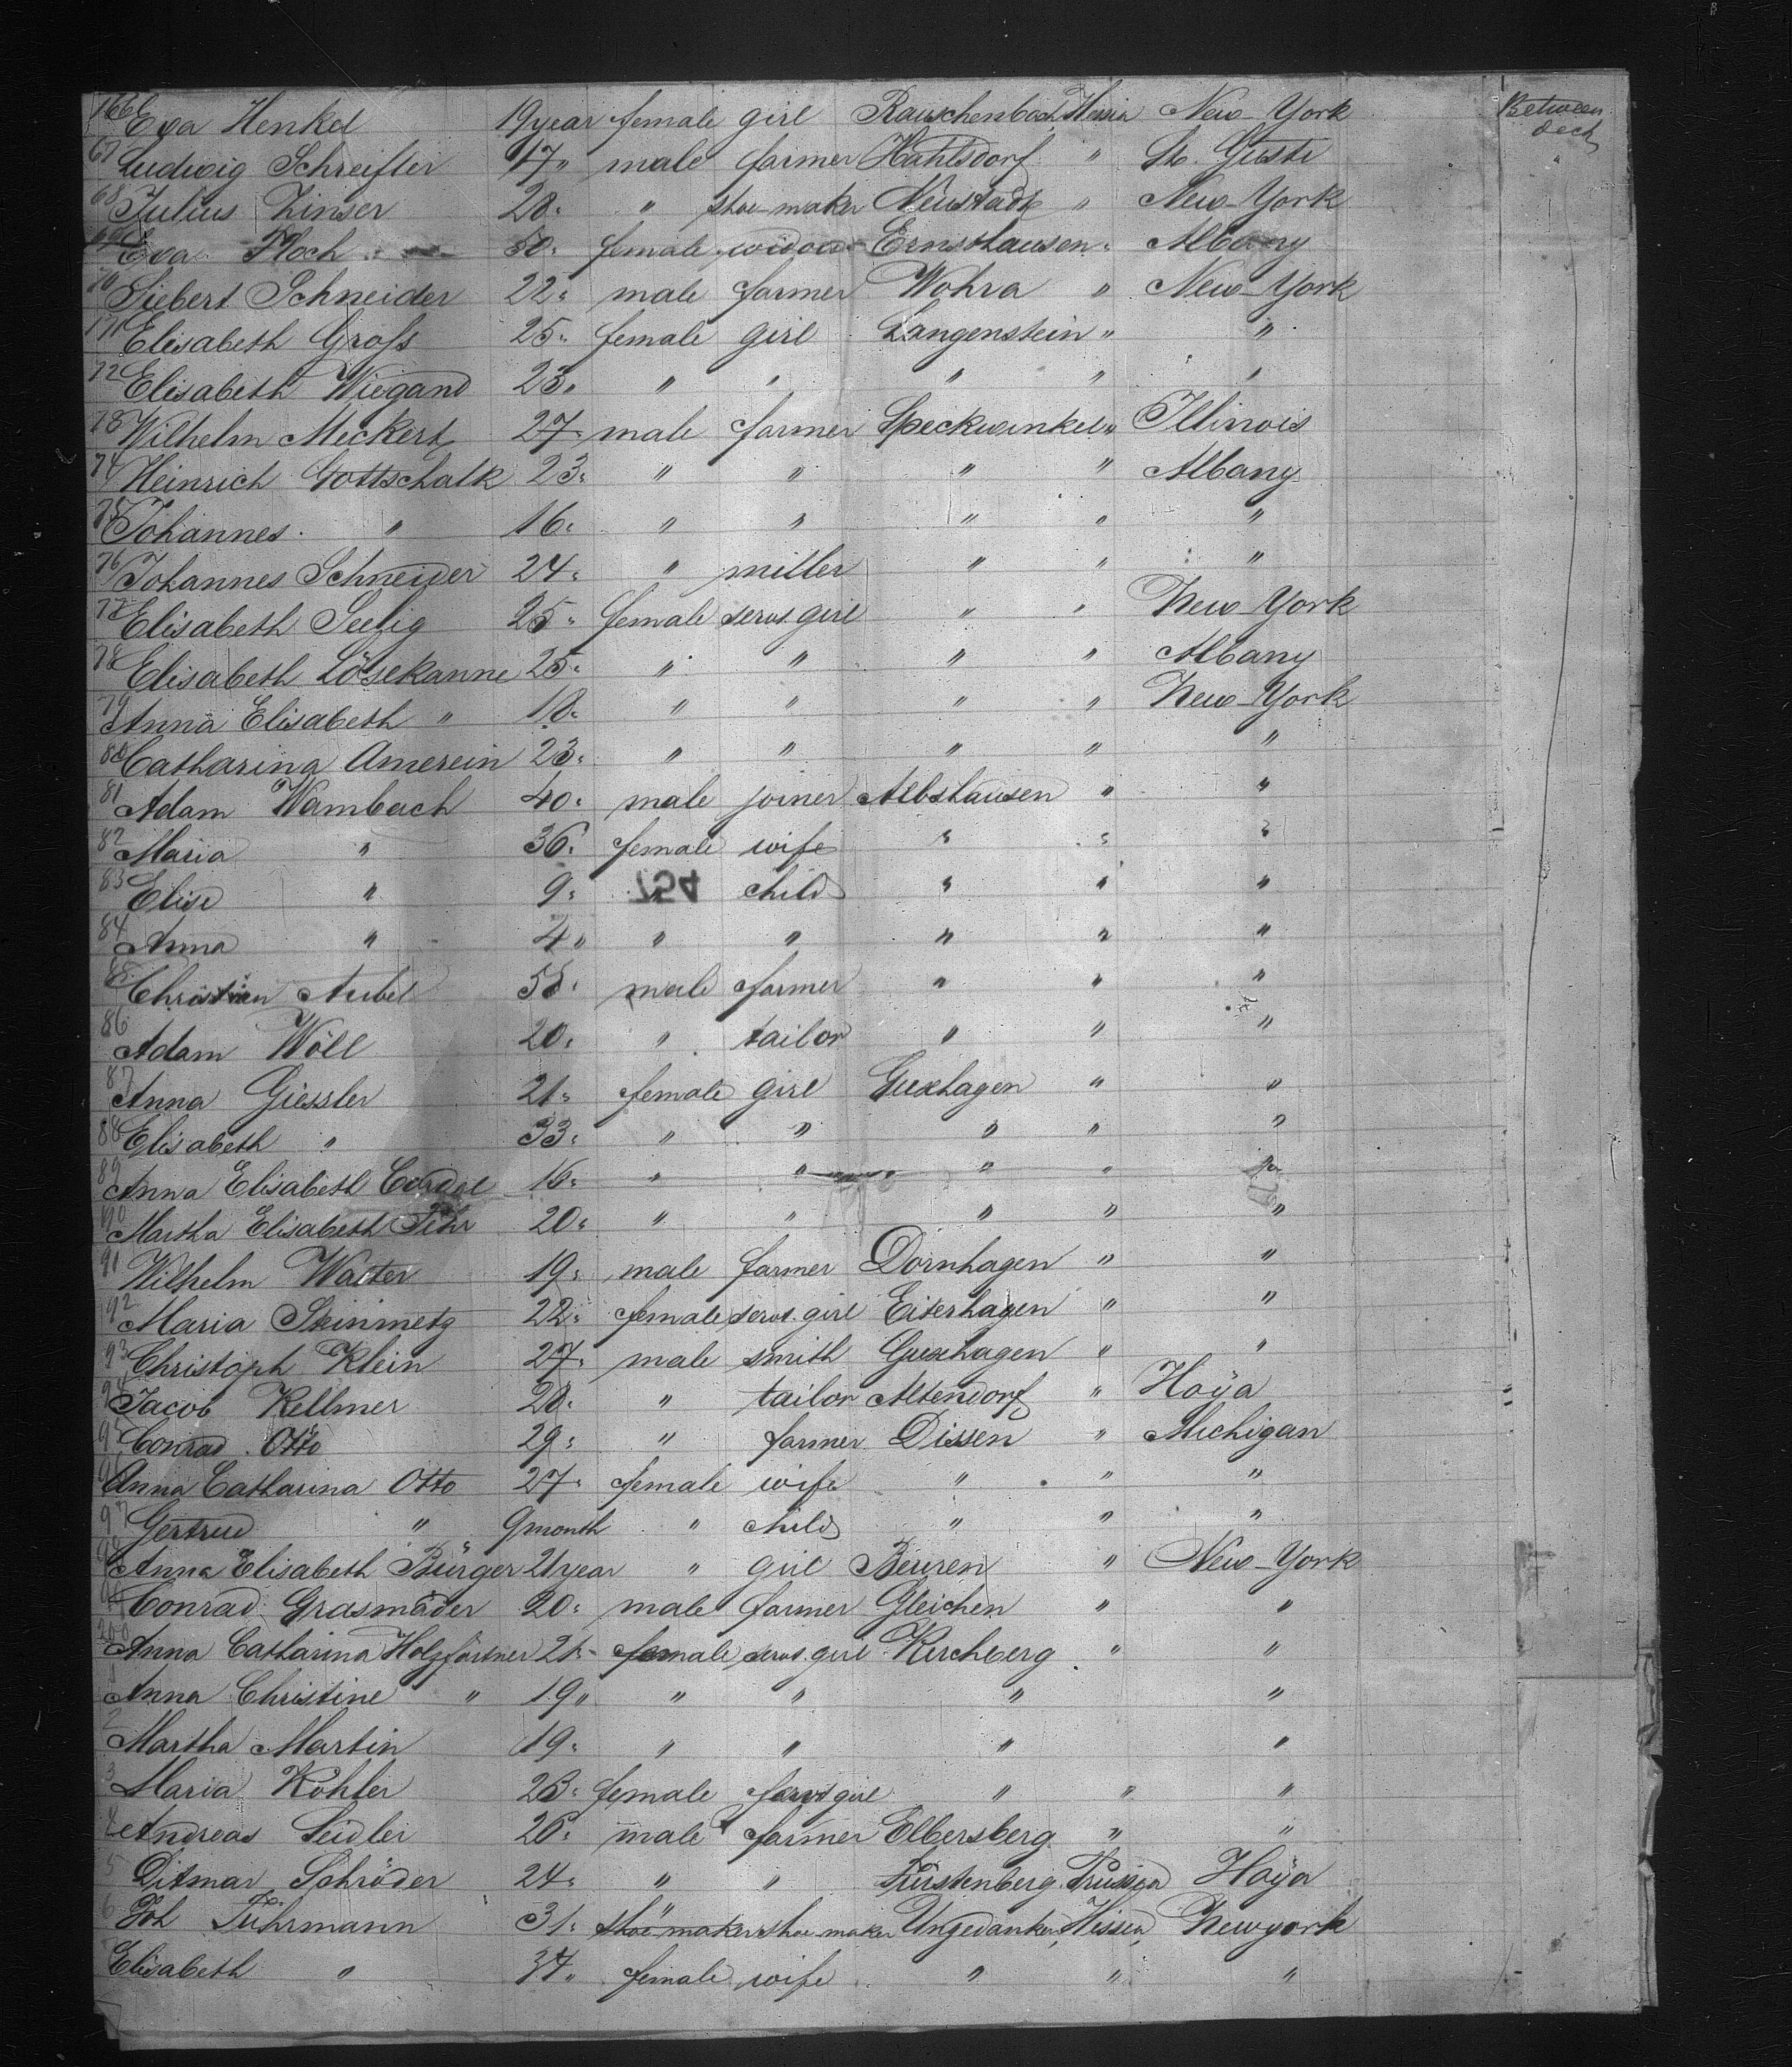 166 Eva Henkel 19 year female girl Rauschenbach Hessia New-York Between deck
67 Ludwig Schreifler 17 " male farmer Hahlsdorf " St. Gusti "
68 Julius Zinser 28 " " shoe-maker Neustadt " New-York
Eva Ploch 50 " female widow Ernsthausen " Albany
70 Siebert Schneider 22 " male farmer Wohra " New-York
171 Elisabeth Groſs 25 " female girl Langenstein " "
72 Elisabeth Wiegand 23 " " " " " "
73 Wilhelm Meckert 27 " male farmer Speckwinkel " Illinois
74 Heinrich Gottschalk 23 " " " " " Albany
75 Johannes " 16 " " " " " "
76 Johannes Schneider 24 " " miller " " "
77 Elisabeth Seelig 25 " female servt. girl " " New-York
78 Elisabeth Lösekanne 25 " " " " " Albany
79 Anna Elisabeth " 18 " " " " " New-York
80 Catharina Amerein 23 " " " " " "
81 Adam Wambach 40 " male joiner Albshausen " "
82 Maria " 36 " female wife " " "
83 Elise " 9 " 754 child " " "
84 Anna " 4 " " " " " "
85 Christian Aubel 58 " male farmer " " "
86 Adam Wöll 20 " " tailor " " "
87 Anna Giessler 21 " female girl Guxhagen " "
88 Elisabeth " 33 " " " " " "
89 Anna Elisabeth 16 " " " " " "
90 Martha Elisabeth Fehr 20 " " " " " "
91 Wilhelm Walter 19 " male farmer Dörnhagen " "
92 Maria Steinmetz 22 " female servt. girl Eiterhagen " "
93 Christoph Klein 27 " male smith Guxhagen " "
94 Jacob Kellmer 28 " " tailor Altendorf " Hoÿa
95 Conrad Otto 29 " " farmer Dissen " Michigan
96 Anna Catharina Otto 27 " female wife " " "
97 Gertrud " 9 month " child " " "
98 Anna Elisabeth Bürger 21 year " girl Beuren " New-York
99 Conrad Grasmäder 20 " male farmer Gleichen " "
200 Anna Catharina Holzförstner 21 " female servt. girl Kirchberg " "
1 Anna Christine " 19 " " " " "
2 Martha Martin 19 " " " " "
3 Maria Köhler 23 " female servt girl " " "
4 Andreas Seidler 26 " male farmer Elbersberg " "
5 Ditmar Schröder 24 " " " Fürstenberg Prussia Hoÿa
6 Joh Fuhrmann 31 " shoe-maker " shoe-maker Ungedanken, Hessen, Newyork
Elisabeth " 34 " female wife " " "